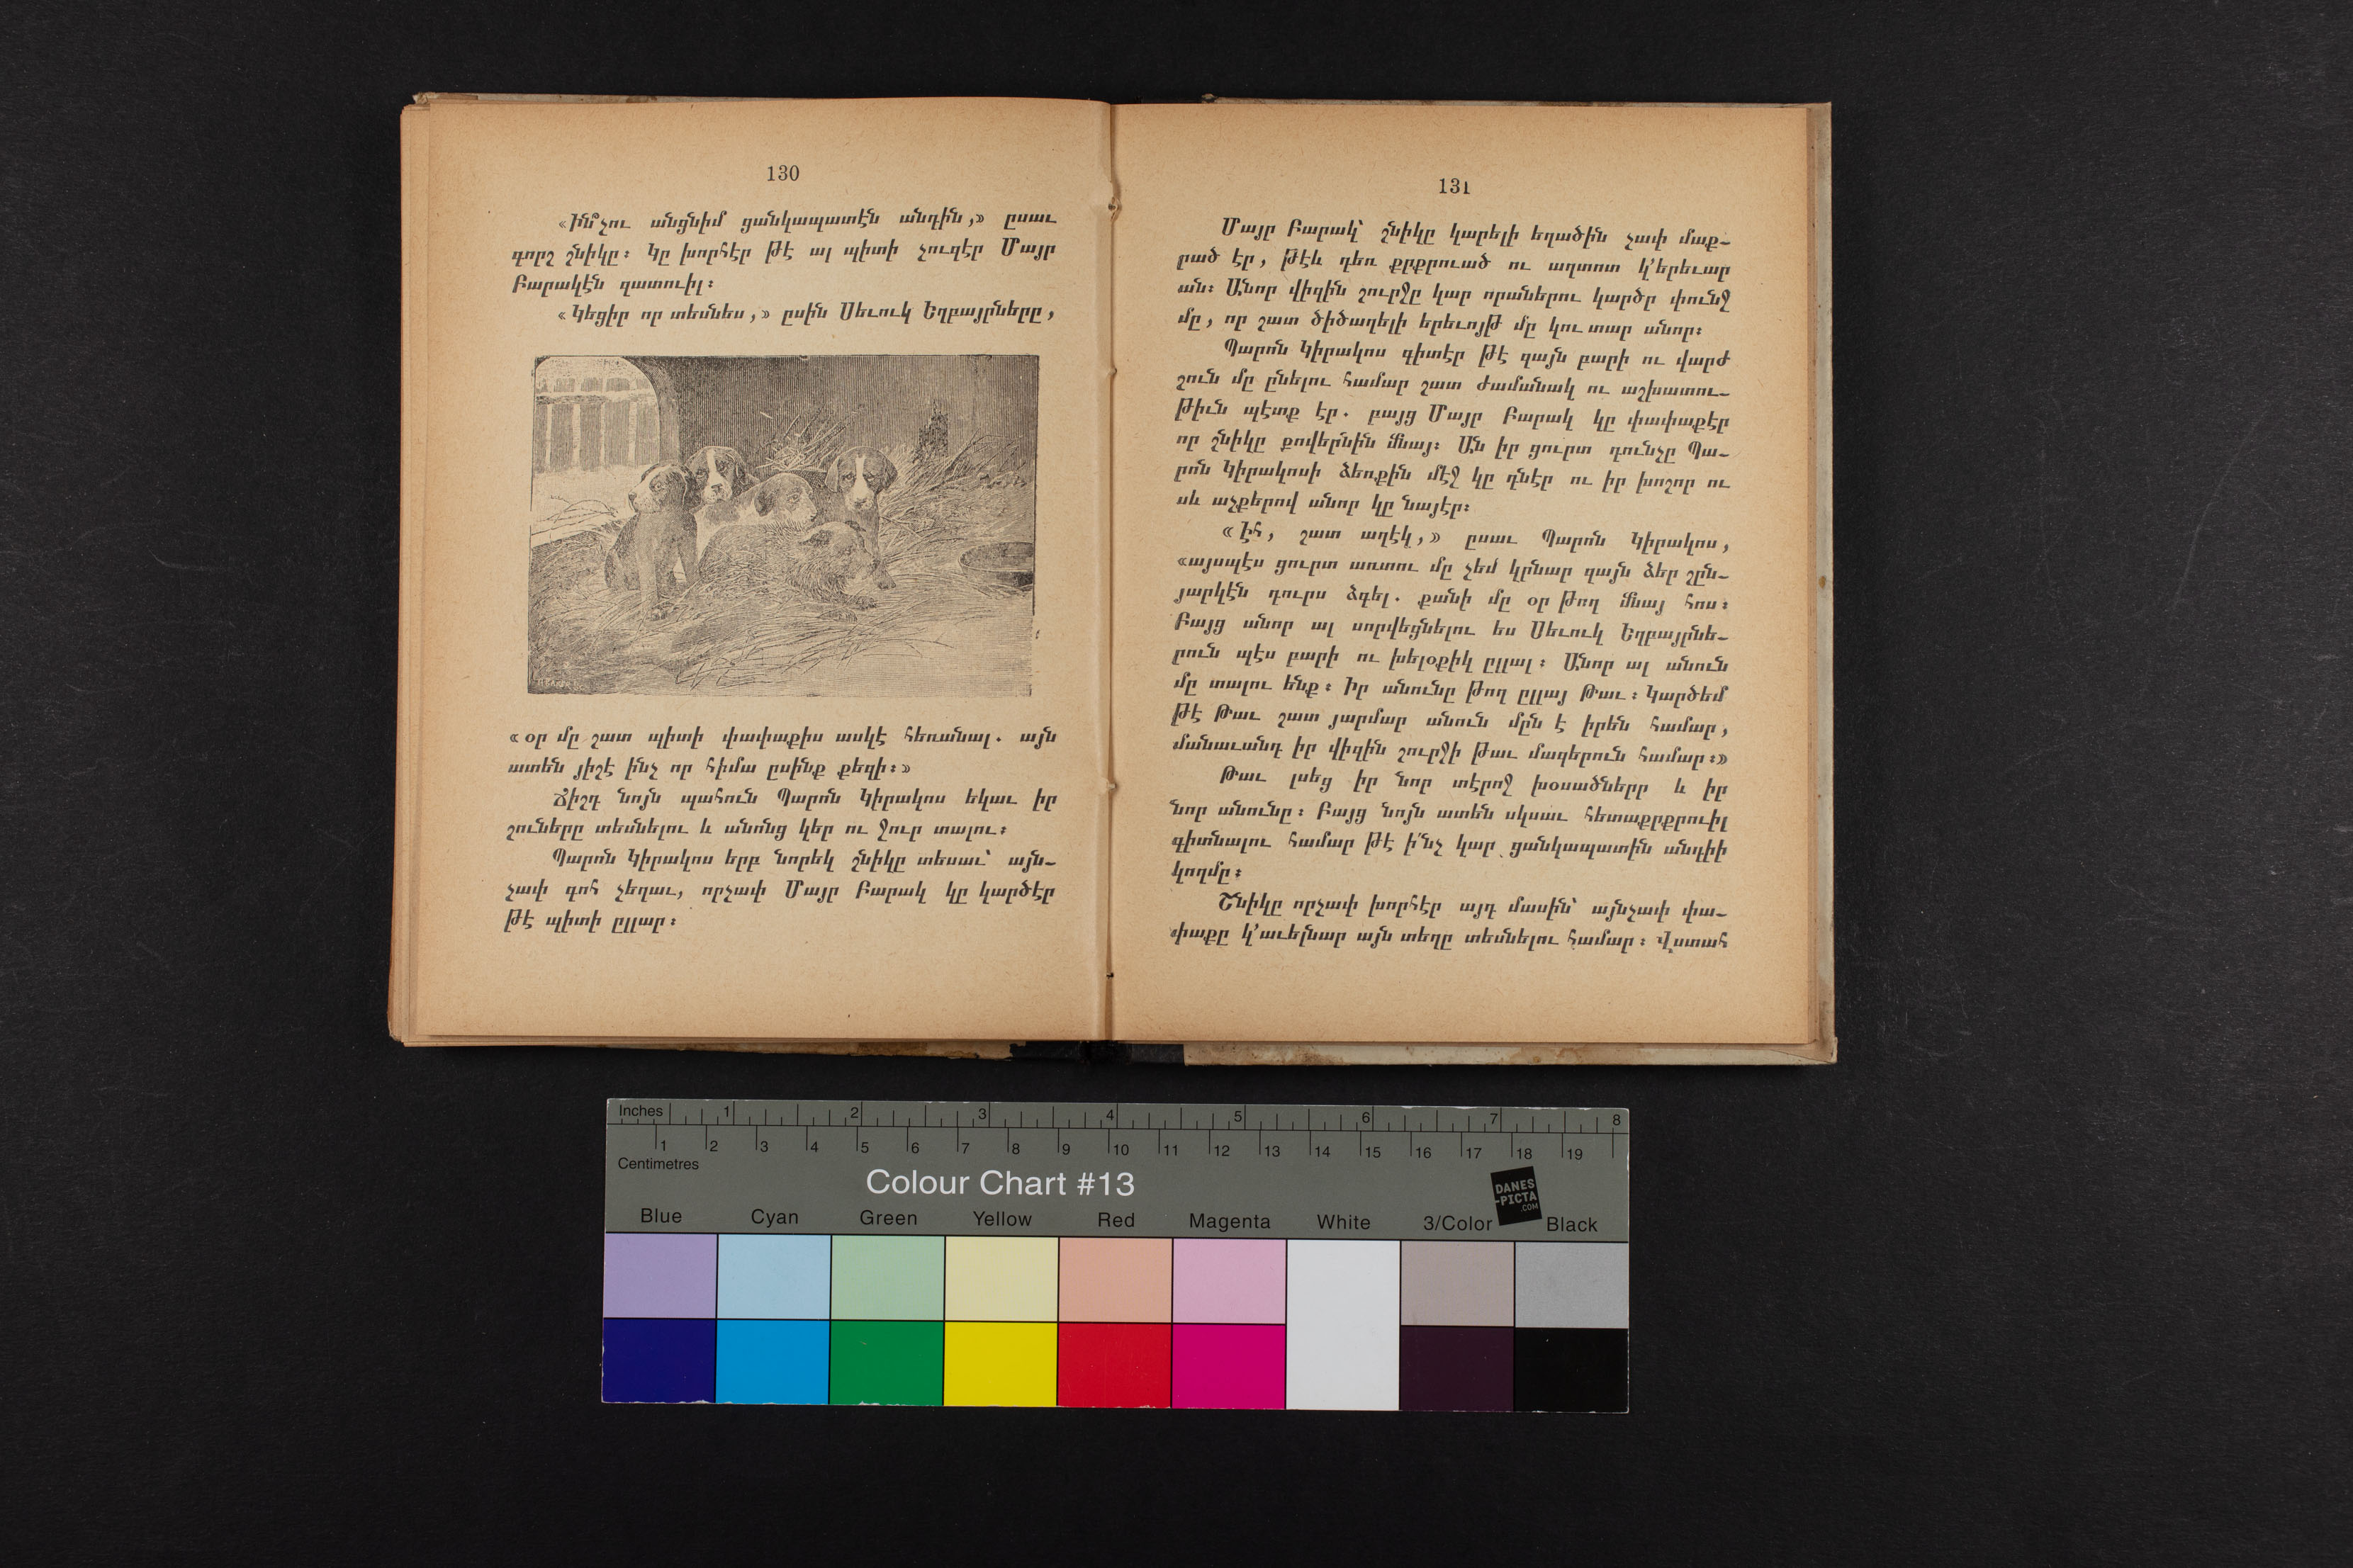 130
«Ինչո՞ւ անցնիմ ցանկապատէն անդին,» ըսաւ
գորշ շնիկը։ Կը խորհէր թէ ալ պիտի չուզէր Մայր
Բարակէն զատուիլ։
«Կեցիր որ տեսնես,» ըսին Սեւուկ Եղբայրները,
«օր մը շատ պիտի փափաքիս ասկէ հեռանալ. այն
ատեն յիշէ ինչ որ հիմա ըսինք քեզի։»
Ճիշդ նոյն պահուն Պարոն Կիրակոս եկաւ իր
շուները տեսնելու և անոնց կեր ու ջուր տալու։
Պարոն Կիրակոս երբ նորեկ շնիկը տեսաւ՝ այն-
չափ գոհ չեղաւ, որչափ Մայր Բարակ կը կարծէր
թէ պիտի ըլլար։
131
Մայր Բարակ՝ շնիկը կարելի եղածին չափ մաք-
րած էր, թէև դեռ քրքրուած ու աղտոտ կ՚երեւար
ան։ Անոր վիզին շուրջը կար որաներու կարծր փունջ
մը, որ շատ ծիծաղելի երեւոյթ մը կու տար անոր։
Պարոն Կիրակոս գիտէր թէ զայն բարի ու վարժ
շուն մը ընելու համար շատ ժամանակ ու աշխատու-
թիւն պէտք էր. բայց Մայր Բարակ կը փափաքէր
որ շնիկը քովերնին մնայ։ Ան իր ցուրտ դունչը Պա-
րոն Կիրակոսի ձեռքին մէջ կը դնէր ու իր խոշոր ու
սև աչքերով անոր կը նայէր։
«Էհ, շատ աղէկ,» ըսաւ Պարոն Կիրակոս,
«այսպէս ցուրտ առտու մը չեմ կրնար զայն ձեր շըն-
յարկէն դուրս ձգել. քանի մը օր թող մնայ հոս։
Բայց անոր ալ սորվեցնելու ես Սեւուկ Եղբայրնե-
րուն պէս բարի ու խելօքիկ ըլլալ։ Անոր ալ անուն
մը տալու ենք։ Իր անունը թող ըլլայ Թաւ։ Կարծեմ
թէ Թաւ շատ յարմար անուն մըն է իրեն համար,
մանաւանդ իր վիզին շուրջի թաւ մազերուն համար։»
Թաւ լսեց իր նոր տէրոջ խօսածները և իր
նոր անունը։ Բայց նոյն ատեն սկսաւ հետաքրքրուիլ
գիտնալու համար թէ ի՛նչ կար ցանկապատին անդիի
կողմը։
Շնիկը որչափ խորհէր այդ մասին՝ այնչափ փա-
փաքը կ՚աւելնար այն տեղը տեսնելու համար։ Վստահ
Inches 1 2 3 4 5 6 7 8
1 2 3 4 5 6 7 8 9 10 11 12 13 14 15 16 17 18 19
Centimetres
Colour Chart #13
DANES
-PICTA
.COM
Blue Cyan Green Yellow Red Magenta White 3/Color Black